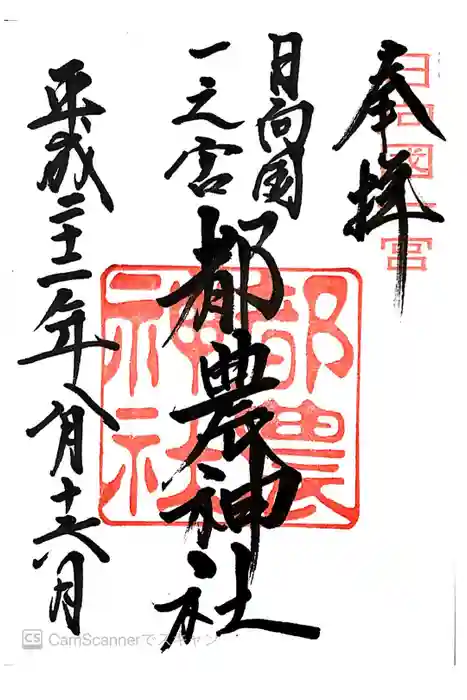 奉拝
日向國一宮
日向国
一之宮
都農神社
都農
神社
平成二十一年八月十六日
CS CamScannerでスキャン